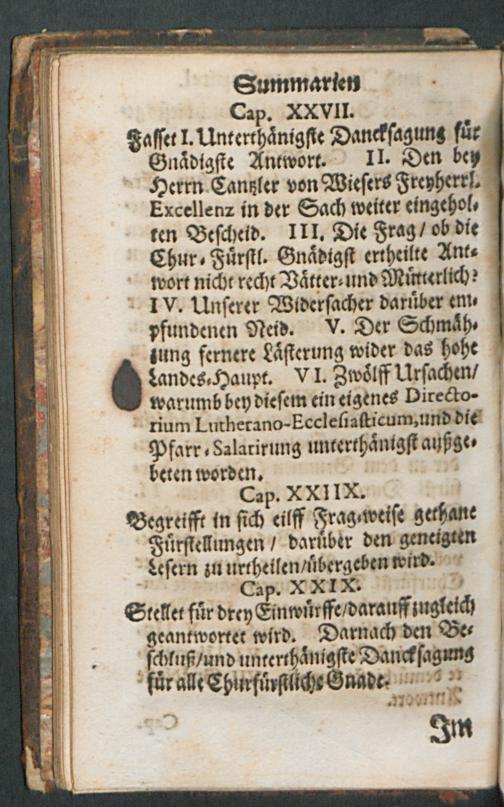 Summarien
Cap. XXVII.
Fasset I. Unterthänigste Dancksagung für
Gnädigste Antwort. II. Den bey
Herrn Cantzler von Wiesers Freyherrl.
Excellenz in der Sach weiter eingehol-
ten Bescheid. III. Die Frag / ob die
Chur-Fürstl. Gnädigst ertheilte Ant-
wort nicht recht Vätter- und Mütterlich?
IV. Unserer Widersacher darüber em-
pfundenen Neid. V. Der Schmäh-
zung fernere Lästerung wider das hohe
Landes-Haupt. VI. Zwölff Ursachen/
warumb bey diesem ein eigenes Directo-
rium Lutherano-Ecclesiasticum, und die
Pfarr-Salarirung unterthänigst außge-
beten worden.
Cap. XXIIX.
Begreifft in sich eilff Frag-weise gethane
Fürstellungen / darüber den geneigten
Lesern zu urtheilen/übergeben wird.
Cap. XXIX.
Stellet für drey Einwürffe/darauff zugleich
geantwortet wird. Darnach den Be-
schluß/und unterthänigste Dancksagung
für alle Churfürstliche Gnade.
Im